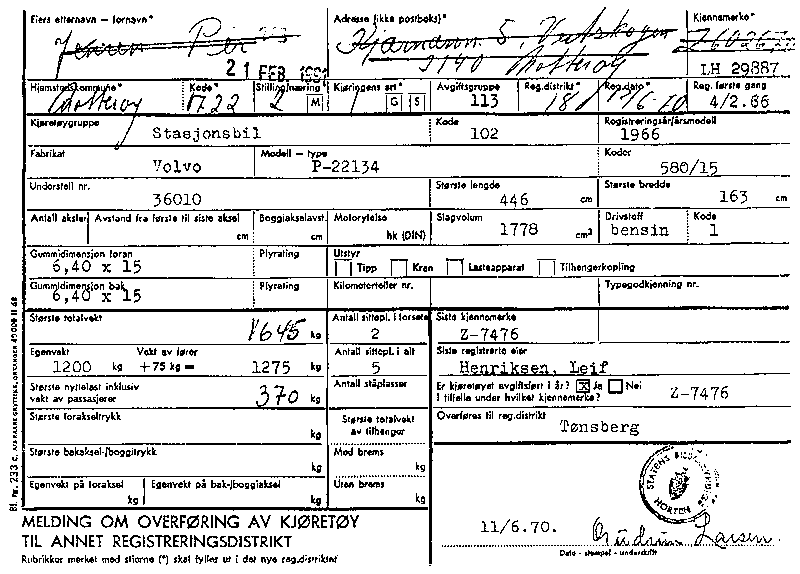 Eiers etternavn — fornavn* Adresse (ikke postboks)* Kjennemerke*
Jensen Per Kjærnåsvn 5, Vestskogen
3140 Nøtterøy
21 FEB. 1991 LH 29887
Hjemstedskommune* Kode* Stilling/næring* Kjøringens art* Avgiftsgruppe Reg.distrikt* Reg.dato* Reg. første gang
Nøtterøy 0722 2 M 1 G S 113 18 4/2.66
Kjøretøygruppe Kode Registreringsår/årsmodell
Stasjonsbil 102 1966
Fabrikat Modell — type Koder
Volvo P-22134 580/15
Understell nr. Største lengde Største bredde
36010 446 cm 163 cm
Antall aksler Avstand fra første til siste aksel Boggiakselavst. Motorytelse Slagvolum Drivstoff Kode
cm cm hk (DIN) 1778 cm³ bensin 1
Gummidimensjon foran Plyrating Utstyr
6,40 x 15 Tipp Kran Lasteapparat Tilhengerkopling
Gummidimensjon bak Plyrating Kilometerteller nr. Typegodkjenning nr.
6,40 x 15
Største totalvekt Antall sittepl. i forsete Siste kjennemerke
1645 kg 2 Z-7476
Egenvekt Vekt av fører Antall sittepl. i alt Siste registrerte eier
1200 kg +75 kg = 1275 kg 5 Henriksen, Leif
Største nyttelast inklusiv Antall ståplasser Er kjøretøyet avgiftsført i år? X Ja Nei
vekt av passasjerer 370 kg I tilfelle under hvilket kjennemerke? Z-7476
Største forakseltrykk Største totalvekt Overføres til reg.distrikt
kg av tilhenger Tønsberg
Største bakaksel-/boggitrykk Med brems
kg kg
Egenvekt på foraksel Egenvekt på bak-/boggiaksel Uten brems
kg kg kg
STATENS BILSAKKYNDIGE
HORTEN
MELDING OM OVERFØRING AV KJØRETØY 11/6.70. Gudrun Larsen
TIL ANNET REGISTRERINGSDISTRIKT Dato - stempel - underskrift
Rubrikker merket med stjerne (*) skal fylles ut i det nye reg.distriktet
Bl. nr. 233 C.